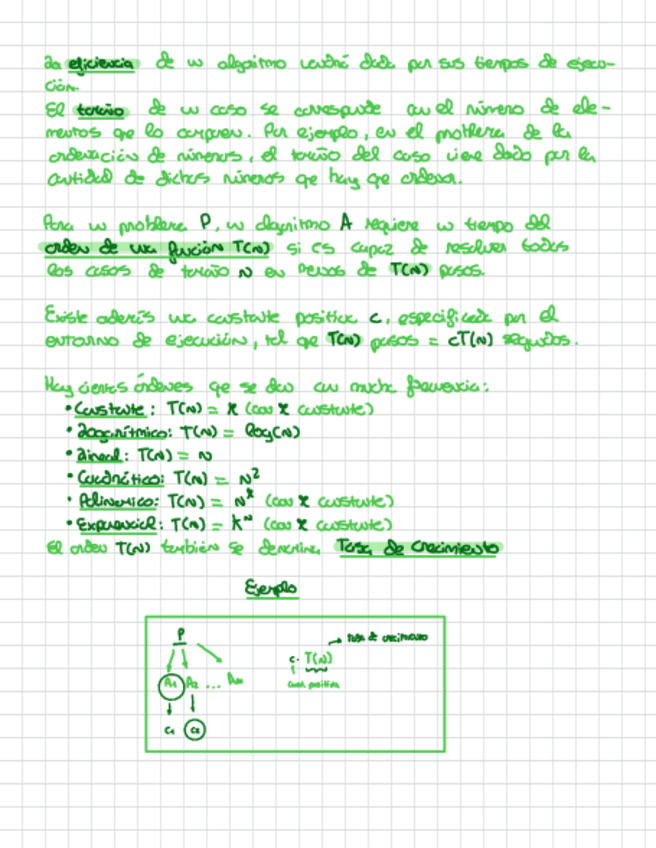 La eficiencia de un algoritmo vendrá dada por sus tiempos de ejecu-
ción.
El tamaño de un caso se corresponde con el número de ele-
mentos que lo componen. Por ejemplo, en el problema de la
ordenación de números, el tamaño del caso viene dado por la
cantidad de dichos números que hay que ordenar.
Para un problema P, un algoritmo A requiere un tiempo del
orden de una función T(N) si es capaz de resolver todos
los casos de tamaño N en menos de T(N) pasos.
Existe además una constante positiva c, especificada por el
entorno de ejecución, tal que T(N) pasos = cT(N) segundos.
Hay ciertos órdenes que se dan con mucha frecuencia:
• Constante: T(N) = K (con K constante)
• Logarítmico: T(N) = log(N)
• Lineal: T(N) = N
• Cuadrático: T(N) = N²
• Polinomico: T(N) = Nᵏ (con K constante)
• Exponencial: T(N) = kᴺ (con K constante)
El orden T(N) también se denomina Tasa de Crecimiento
Ejemplo
P
→ tasa de crecimiento
c · T(N)
A₁ A₂ ... Am
Const. positiva
C₁ C₂